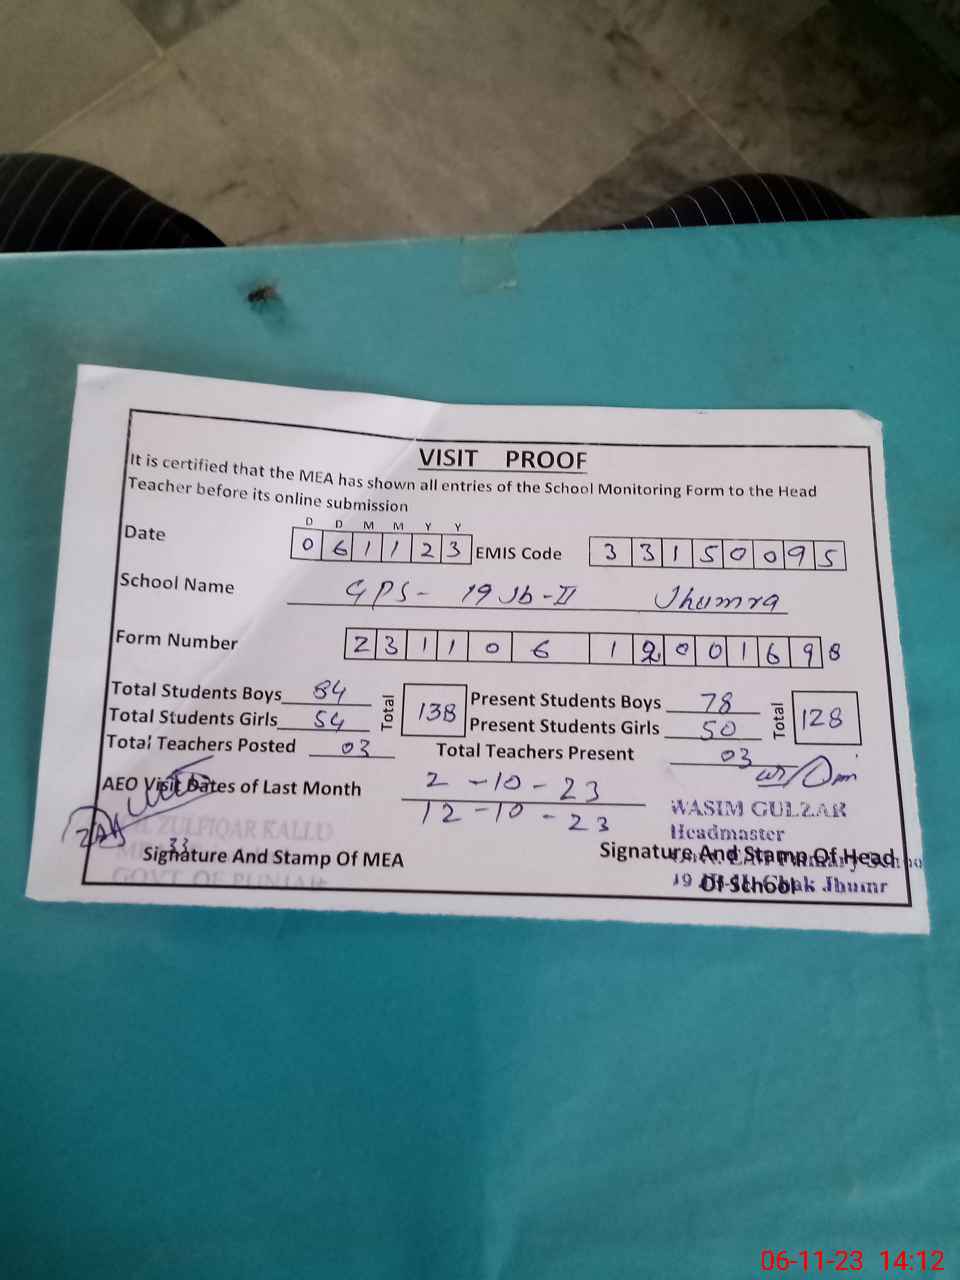 VISIT PROOF
It is certified that the MEA has shown all entries of the School Monitoring Form to the Head
Teacher before its online submission
D D M M Y Y
Date 0 6 1 1 2 3 EMIS Code 3 3 1 5 0 0 9 5
School Name GPS- 19 Jb-II Jhumra
Form Number 2 3 1 1 0 6 1 2 0 0 1 6 9 8
Total Students Boys 84 Total 138 Present Students Boys 78 Total 128
Total Students Girls 54 Present Students Girls 50
Total Teachers Posted 03 Total Teachers Present 03
AEO Visit Dates of Last Month 2-10-23
12-10-23
WASIM GULZAR
Headmaster
ZULFIQAR KALLU
33
Signature And Stamp Of MEA
Signature And Stamp Of Head
Of School
19 Chak Jhumr
GOVT OF PUNJAB
06-11-23 14:12